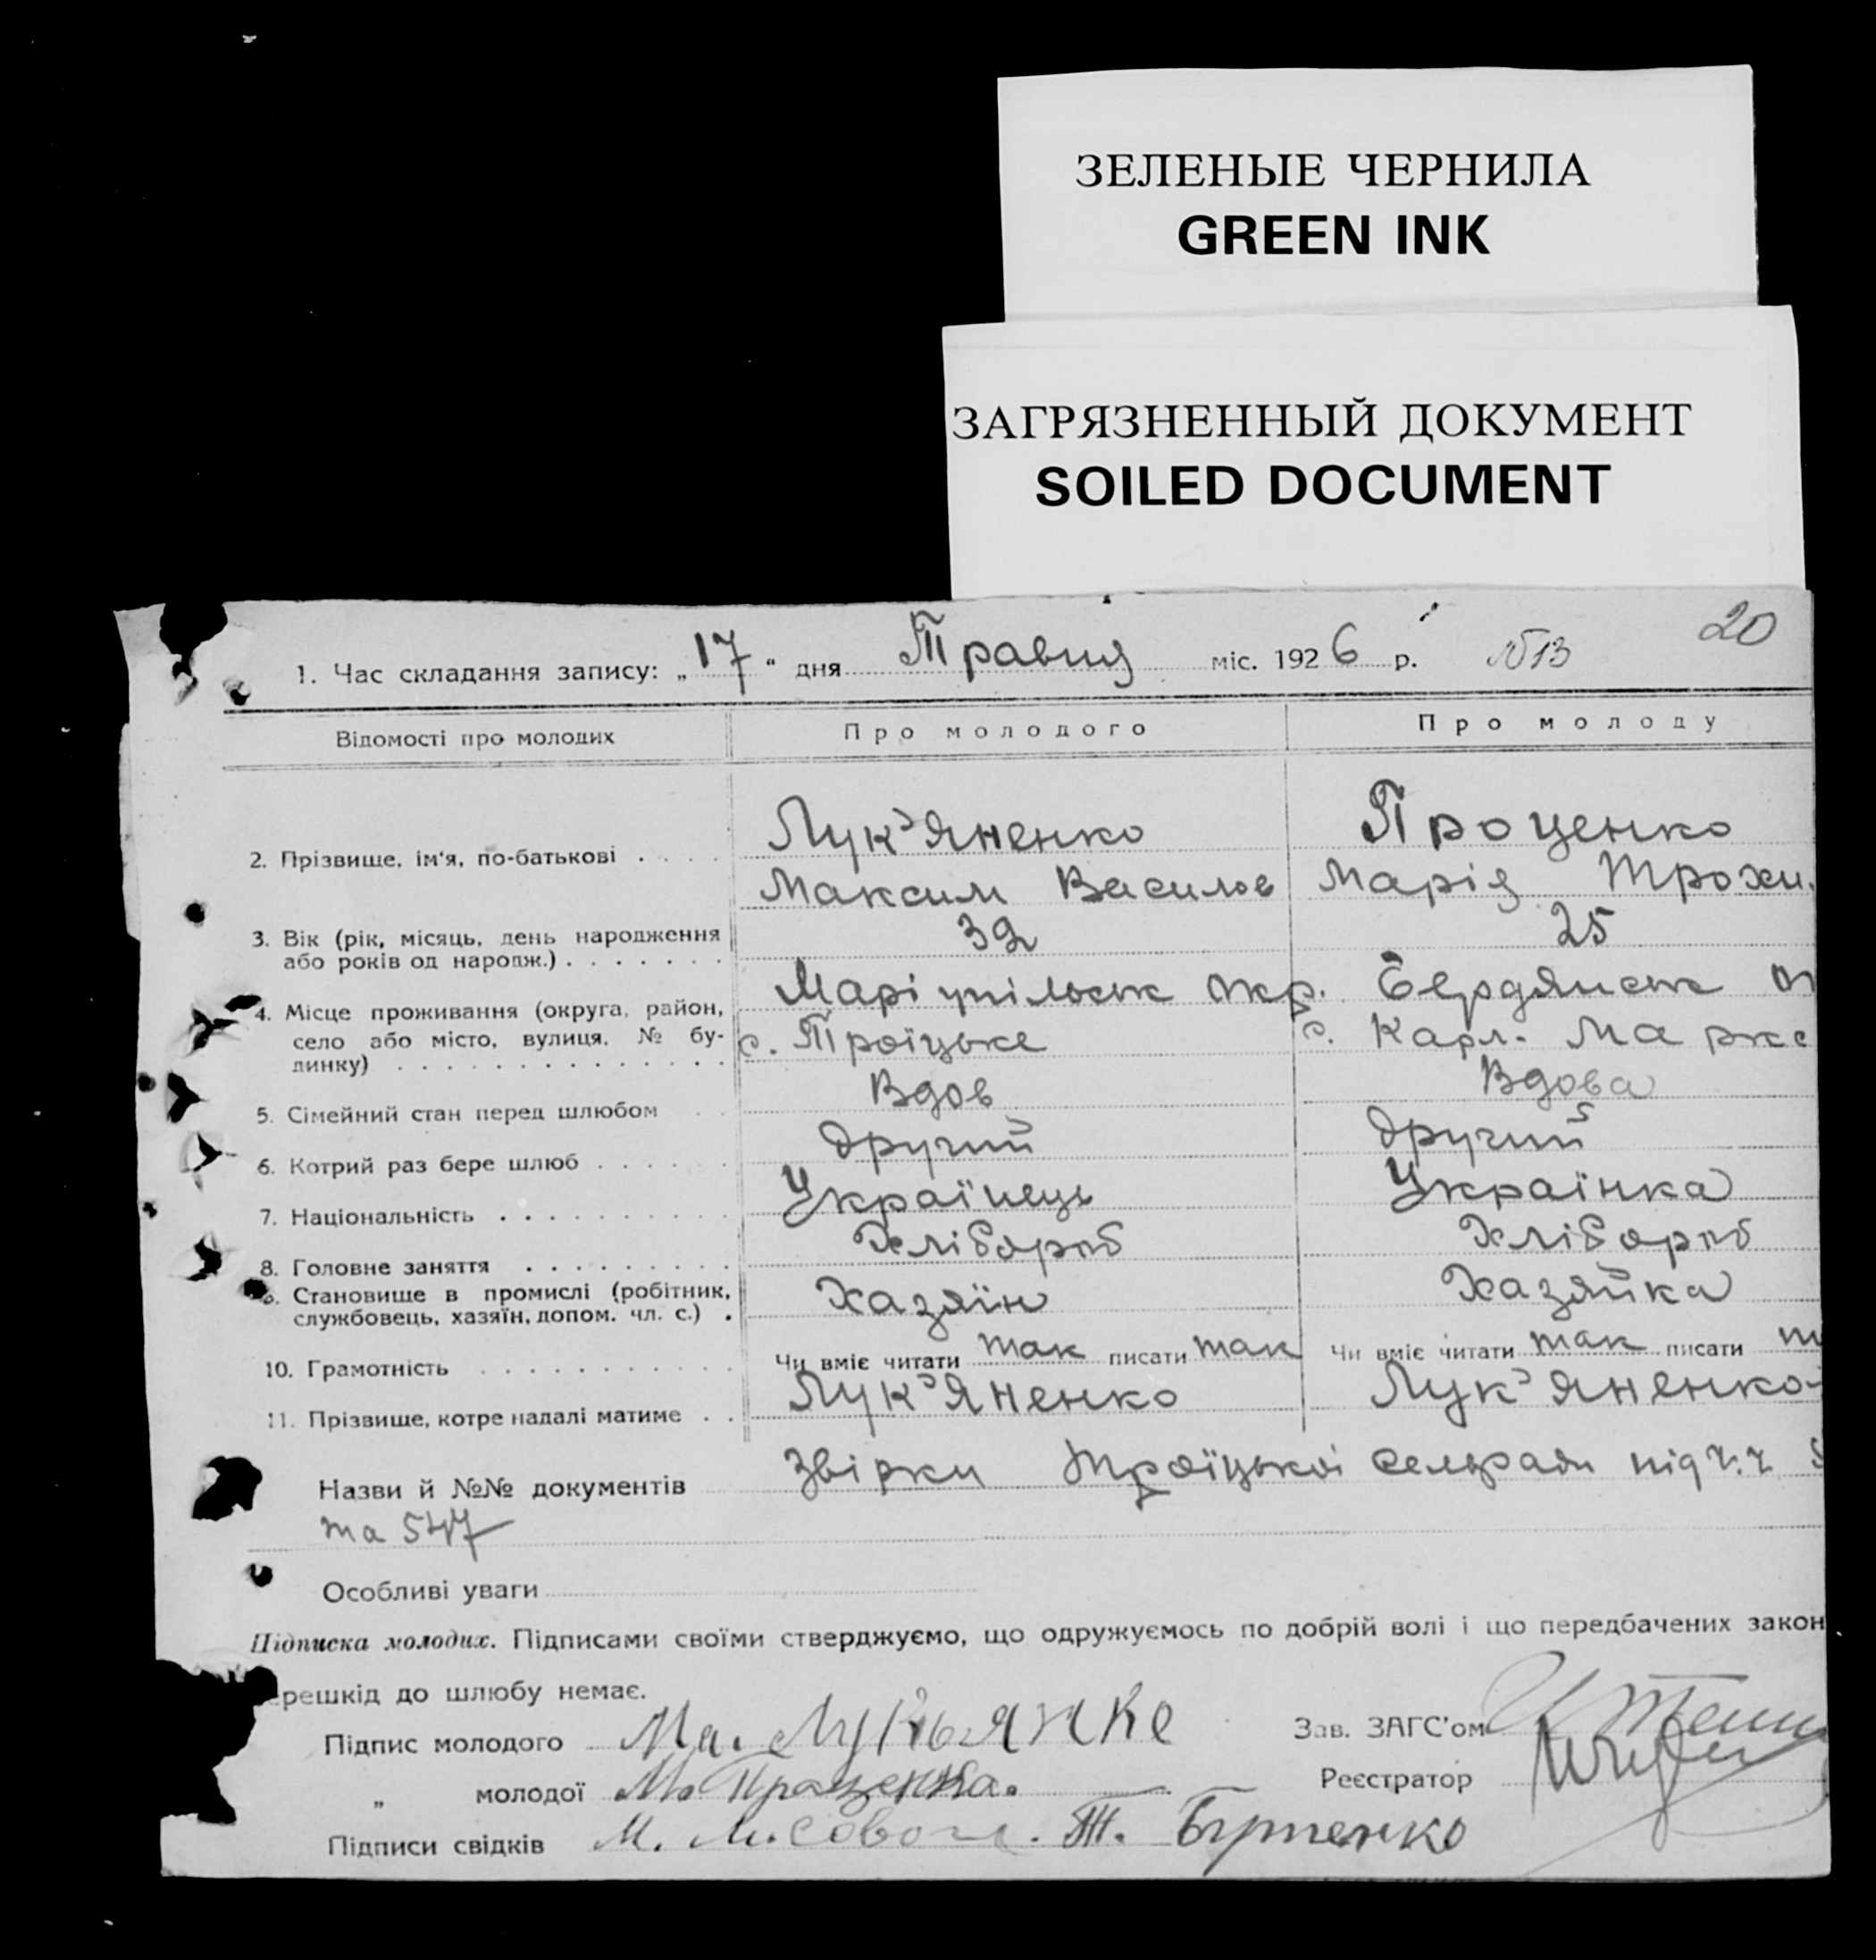 ЗЕЛЕНЫЕ ЧЕРНИЛА
GREEN INK
ЗАГРЯЗНЕННЫЙ ДОКУМЕНТ
SOILED DOCUMENT
20
1. Час складання запису: „17“ дня Травня міс. 1926 р. №13
Відомості про молодих Про молодого Про молоду
Лук'яненко Проценко
2. Прізвище, ім'я, по-батькові
Максим Василов Марія Трохи.
3. Вік (рік, місяць, день народження 32 25
або років од народж.)
Маріупільськ окр. Бердянськ ок
4. Місце проживання (округа, район,
село або місто, вулиця, № бу- с. Троїцьке с. Карл. Маркс
динку)
5. Сімейний стан перед шлюбом Вдов Вдова
6. Котрий раз бере шлюб другий другий
7. Національність Українець Українка
8. Головне заняття Хлібороб Хлібороб
9. Становище в промислі (робітник, Хазяїн Хазяйка
службовець, хазяїн, допом. чл. с.)
10. Грамотність Чи вміє читати так писати так Чи вміє читати так писати
11. Прізвище, котре надалі матиме Лук'яненко Лук'яненко
Назви й №№ документів Звірки Троїцької сельради під ч.ч
та 547
Особливі уваги
Підписка молодих. Підписами своїми стверджуємо, що одружуємось по добрій волі і що передбачених закон
решкід до шлюбу немає.
Підпис молодого Ма. Лукьянке Зав. ЗАГС'ом
„ молодої М. Проценка. Реєстратор
Підписи свідків М. Т.